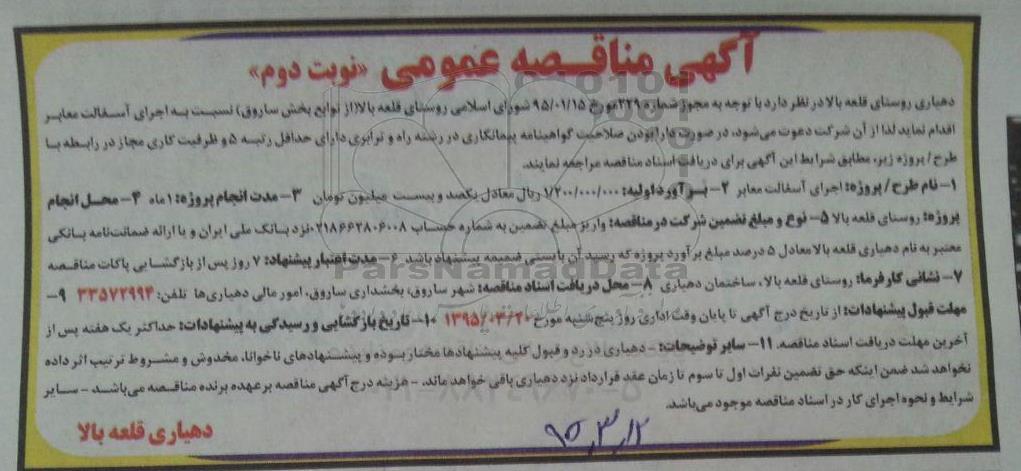 آگهی مناقصه عمومی «نوبت دوم»
دهیاری روستای قلعه بالا در نظر دارد با توجه به مجوز شماره ۲۲۹ مورخ ۹۵/۰۱/۱۵ شورای اسلامی روستای قلعه بالا (از توابع بخش ساروق) نسبت به اجرای آسفالت معابر
اقدام نماید لذا از آن شرکت دعوت می‌شود، در صورت دارا بودن صلاحیت گواهینامه پیمانکاری در رشته راه و ترابری دارای حداقل رتبه ۵ و ظرفیت کاری مجاز در رابطه با
طرح/ پروژه زیر، مطابق شرایط این آگهی برای دریافت اسناد مناقصه مراجعه نمایند.
۱– نام طرح/ پروژه: اجرای آسفالت معابر ۲– برآورد اولیه: ۱/۲۰۰/۰۰۰/۰۰۰ ریال معادل یکصد و بیست میلیون تومان ۳– مدت انجام پروژه: ۱ ماه ۴– محل انجام
پروژه: روستای قلعه بالا ۵– نوع و مبلغ تضمین شرکت در مناقصه: واریز مبلغ تضمین به شماره حساب ۰۲۱۸۶۶۲۸۰۶۰۰۸ نزد بانک ملی ایران و یا ارائه ضمانت‌نامه بانکی
معتبر به نام دهیاری قلعه بالا معادل ۵ درصد مبلغ برآورد پروژه که رسید آن بایستی ضمیمه پیشنهاد باشد ۶– مدت اعتبار پیشنهاد: ۷ روز پس از بازگشایی پاکات مناقصه
۷– نشانی کارفرما: روستای قلعه بالا، ساختمان دهیاری ۸– محل دریافت اسناد مناقصه: شهر ساروق، بخشداری ساروق، امور مالی دهیاری‌ها تلفن: ۳۳۵۷۲۹۹۴ ۹–
مهلت قبول پیشنهادات: از تاریخ درج آگهی تا پایان وقت اداری روز پنج‌شنبه مورخ ۱۳۹۵/۰۳/۲۰ ۱۰– تاریخ بازگشایی و رسیدگی به پیشنهادات: حداکثر یک هفته پس از
آخرین مهلت دریافت اسناد مناقصه. ۱۱– سایر توضیحات: – دهیاری در رد و قبول کلیه پیشنهادها مختار بوده و پیشنهادهای ناخوانا، مخدوش و مشروط ترتیب اثر داده
نخواهد شد ضمن اینکه حق تضمین نفرات اول تا سوم تا زمان عقد قرارداد نزد دهیاری باقی خواهد ماند. – هزینه درج آگهی مناقصه بر عهده برنده مناقصه می‌باشد – سایر
شرایط و نحوه اجرای کار در اسناد مناقصه موجود می‌باشد.
دهیاری قلعه بالا
۹۵,۳,۱۲
ParsNamadData